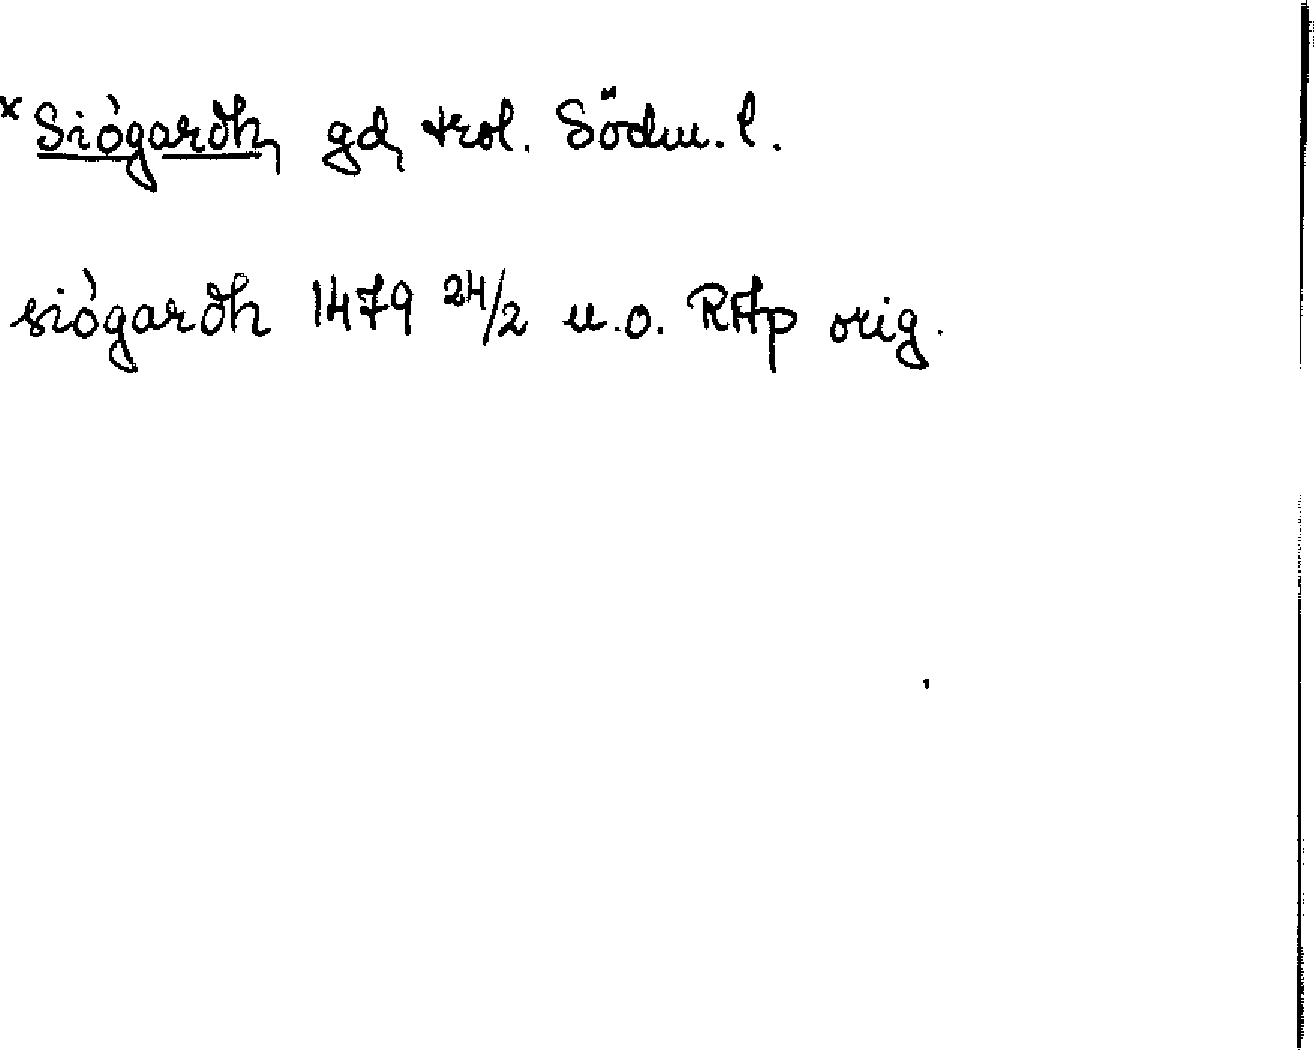 × Siògardh, gd, trol. Södm. l.
siògardh 1479 24/2 u.o. RAp orig.